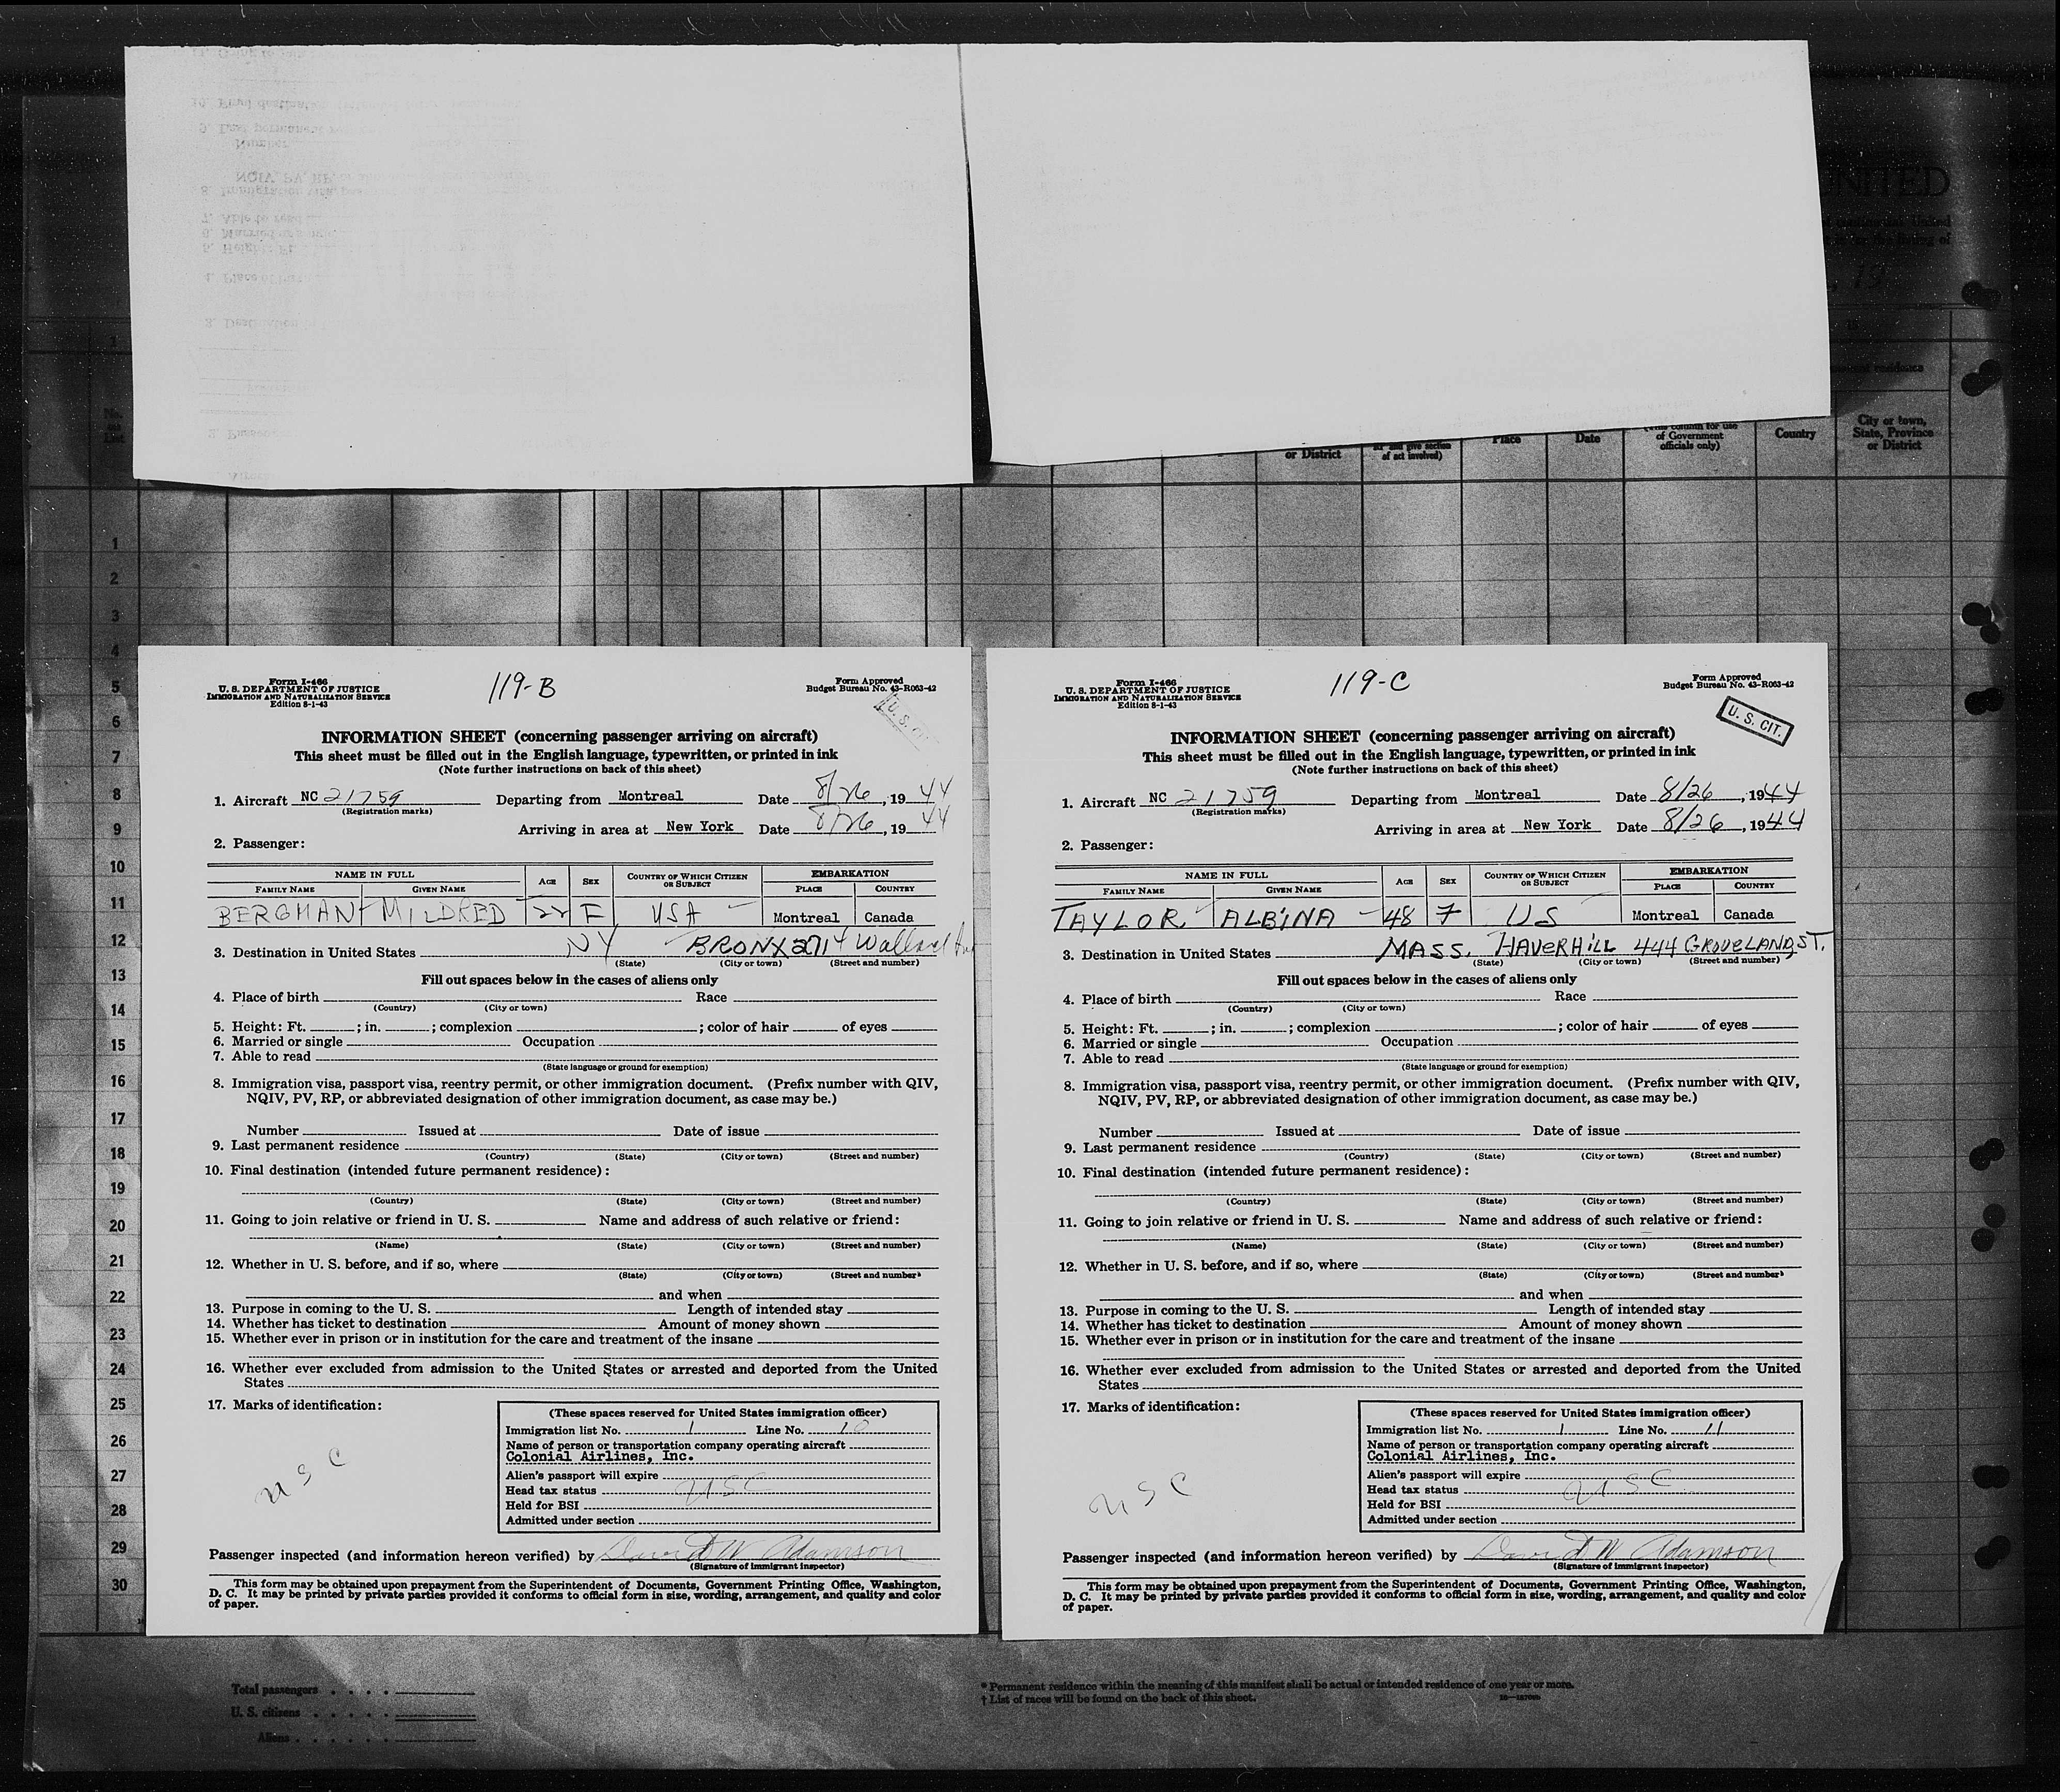 NITED
, 19
No. on List
or District
and give section of act involved)
Place
Date
(This column for use of Government officials only)
Country
City or town, State, Province or District
residence
1
2
3
4
5
6
7
8
9
10
11
12
13
14
15
16
17
18
19
20
21
22
23
24
25
26
27
28
29
30
Form I-466
U. S. DEPARTMENT OF JUSTICE
IMMIGRATION AND NATURALIZATION SERVICE
Edition 8-1-43
119-B
Form Approved
Budget Bureau No. 43-R063-42
U. S.
INFORMATION SHEET (concerning passenger arriving on aircraft)
This sheet must be filled out in the English language, typewritten, or printed in ink
(Note further instructions on back of this sheet)
1. Aircraft NC 21759 Departing from Montreal Date 8/26, 1944
(Registration marks)
Arriving in area at New York Date 8/26, 1944
2. Passenger:
NAME IN FULL AGE SEX COUNTRY OF WHICH CITIZEN OR SUBJECT EMBARKATION
FAMILY NAME GIVEN NAME PLACE COUNTRY
BERGMAN MILDRED 22 F USA Montreal Canada
3. Destination in United States NY BRONX 2714 Wallace Av
(State) (City or town) (Street and number)
Fill out spaces below in the cases of aliens only
4. Place of birth Race
(Country) (City or town)
5. Height: Ft. ; in. ; complexion ; color of hair of eyes
6. Married or single Occupation
7. Able to read
(State language or ground for exemption)
8. Immigration visa, passport visa, reentry permit, or other immigration document. (Prefix number with QIV,
NQIV, PV, RP, or abbreviated designation of other immigration document, as case may be.)
Number Issued at Date of issue
9. Last permanent residence
(Country) (State) (City or town) (Street and number)
10. Final destination (intended future permanent residence):
(Country) (State) (City or town) (Street and number)
11. Going to join relative or friend in U. S. Name and address of such relative or friend:
(Name) (State) (City or town) (Street and number)
12. Whether in U. S. before, and if so, where
(State) (City or town) (Street and number)
and when
13. Purpose in coming to the U. S. Length of intended stay
14. Whether has ticket to destination Amount of money shown
15. Whether ever in prison or in institution for the care and treatment of the insane
16. Whether ever excluded from admission to the United States or arrested and deported from the United
States
17. Marks of identification:
USC
(These spaces reserved for United States immigration officer)
Immigration list No. 1 Line No. 10
Name of person or transportation company operating aircraft
Colonial Airlines, Inc.
Alien's passport will expire
Head tax status USC
Held for BSI
Admitted under section
Passenger inspected (and information hereon verified) by David W Adamson
(Signature of immigrant inspector)
This form may be obtained upon prepayment from the Superintendent of Documents, Government Printing Office, Washington,
D. C. It may be printed by private parties provided it conforms to official form in size, wording, arrangement, and quality and color
of paper.
Form I-466
U. S. DEPARTMENT OF JUSTICE
IMMIGRATION AND NATURALIZATION SERVICE
Edition 8-1-43
119-C
Form Approved
Budget Bureau No. 43-R063-42
U. S. CIT.
INFORMATION SHEET (concerning passenger arriving on aircraft)
This sheet must be filled out in the English language, typewritten, or printed in ink
(Note further instructions on back of this sheet)
1. Aircraft NC 21759 Departing from Montreal Date 8/26, 1944
(Registration marks)
Arriving in area at New York Date 8/26, 1944
2. Passenger:
NAME IN FULL AGE SEX COUNTRY OF WHICH CITIZEN OR SUBJECT EMBARKATION
FAMILY NAME GIVEN NAME PLACE COUNTRY
TAYLOR ALBINA 48 F US Montreal Canada
3. Destination in United States MASS. HAVERHILL 444 GROVELAND ST.
(State) (City or town) (Street and number)
Fill out spaces below in the cases of aliens only
4. Place of birth Race
(Country) (City or town)
5. Height: Ft. ; in. ; complexion ; color of hair of eyes
6. Married or single Occupation
7. Able to read
(State language or ground for exemption)
8. Immigration visa, passport visa, reentry permit, or other immigration document. (Prefix number with QIV,
NQIV, PV, RP, or abbreviated designation of other immigration document, as case may be.)
Number Issued at Date of issue
9. Last permanent residence
(Country) (State) (City or town) (Street and number)
10. Final destination (intended future permanent residence):
(Country) (State) (City or town) (Street and number)
11. Going to join relative or friend in U. S. Name and address of such relative or friend:
(Name) (State) (City or town) (Street and number)
12. Whether in U. S. before, and if so, where
(State) (City or town) (Street and number)
and when
13. Purpose in coming to the U. S. Length of intended stay
14. Whether has ticket to destination Amount of money shown
15. Whether ever in prison or in institution for the care and treatment of the insane
16. Whether ever excluded from admission to the United States or arrested and deported from the United
States
17. Marks of identification:
USC
(These spaces reserved for United States immigration officer)
Immigration list No. 1 Line No. 11
Name of person or transportation company operating aircraft
Colonial Airlines, Inc.
Alien's passport will expire
Head tax status USC
Held for BSI
Admitted under section
Passenger inspected (and information hereon verified) by David W Adamson
(Signature of immigrant inspector)
This form may be obtained upon prepayment from the Superintendent of Documents, Government Printing Office, Washington,
D. C. It may be printed by private parties provided it conforms to official form in size, wording, arrangement, and quality and color
of paper.
Total passengers
U. S. citizens
Aliens
* Permanent residence within the meaning of this manifest shall be actual or intended residence of one year or more.
† List of races will be found on the back of this sheet.